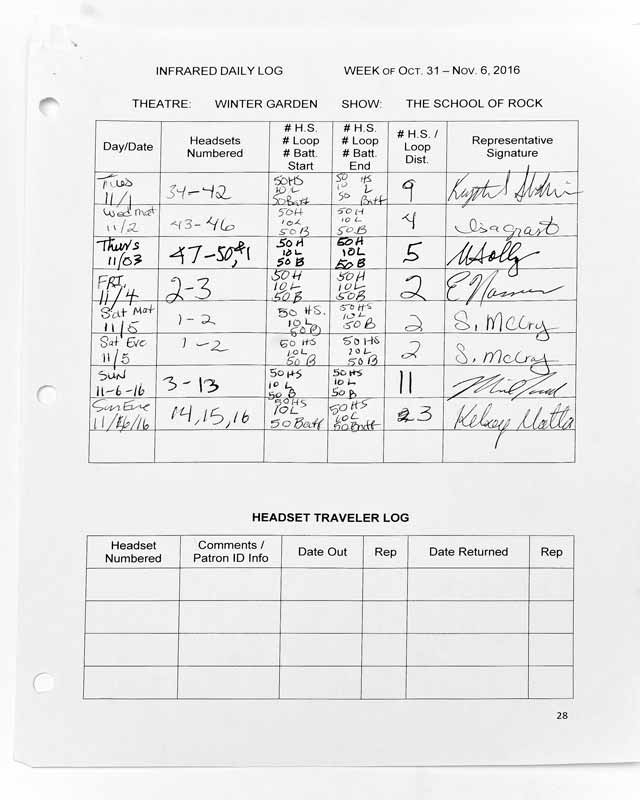 INFRARED DAILY LOG WEEK OF OCT. 31 – NOV. 6, 2016
THEATRE: WINTER GARDEN SHOW: THE SCHOOL OF ROCK
Day/Date
Headsets
Numbered
# H.S.
# Loop
# Batt.
Start
# H.S.
# Loop
# Batt.
End
# H.S. /
Loop
Dist.
Representative
Signature
Tues
11/1
34-42
50HS
10 L
50Batt
50 HS
10 L
50 Batt
9
Wed Mat
11/2
43-46
50H
10L
50B
50H
10L
50B
4
Thurs
11/03
47-50,1
50H
10L
50B
50H
10L
50B
5
FRI,
11/4
2-3
50H
10L
50B
50H
10L
50B
2
Sat Mat
11/5
1-2
50 HS.
10 L
50B
50HS
10L
50B
2
S. McCry
Sat Eve
11/5
1-2
50 HS
10L
50B
50HS
10L
50B
2
S. McCry
SUN
11-6-16
3-13
50HS
10 L
50 B
50HS
10L
50B
11
Sun Eve
11/6/16
14,15,16
50HS
10L
50Batt
50HS
10L
50Batt
3
Kelsey Matta
HEADSET TRAVELER LOG
Headset
Numbered
Comments /
Patron ID Info
Date Out
Rep
Date Returned
Rep
28